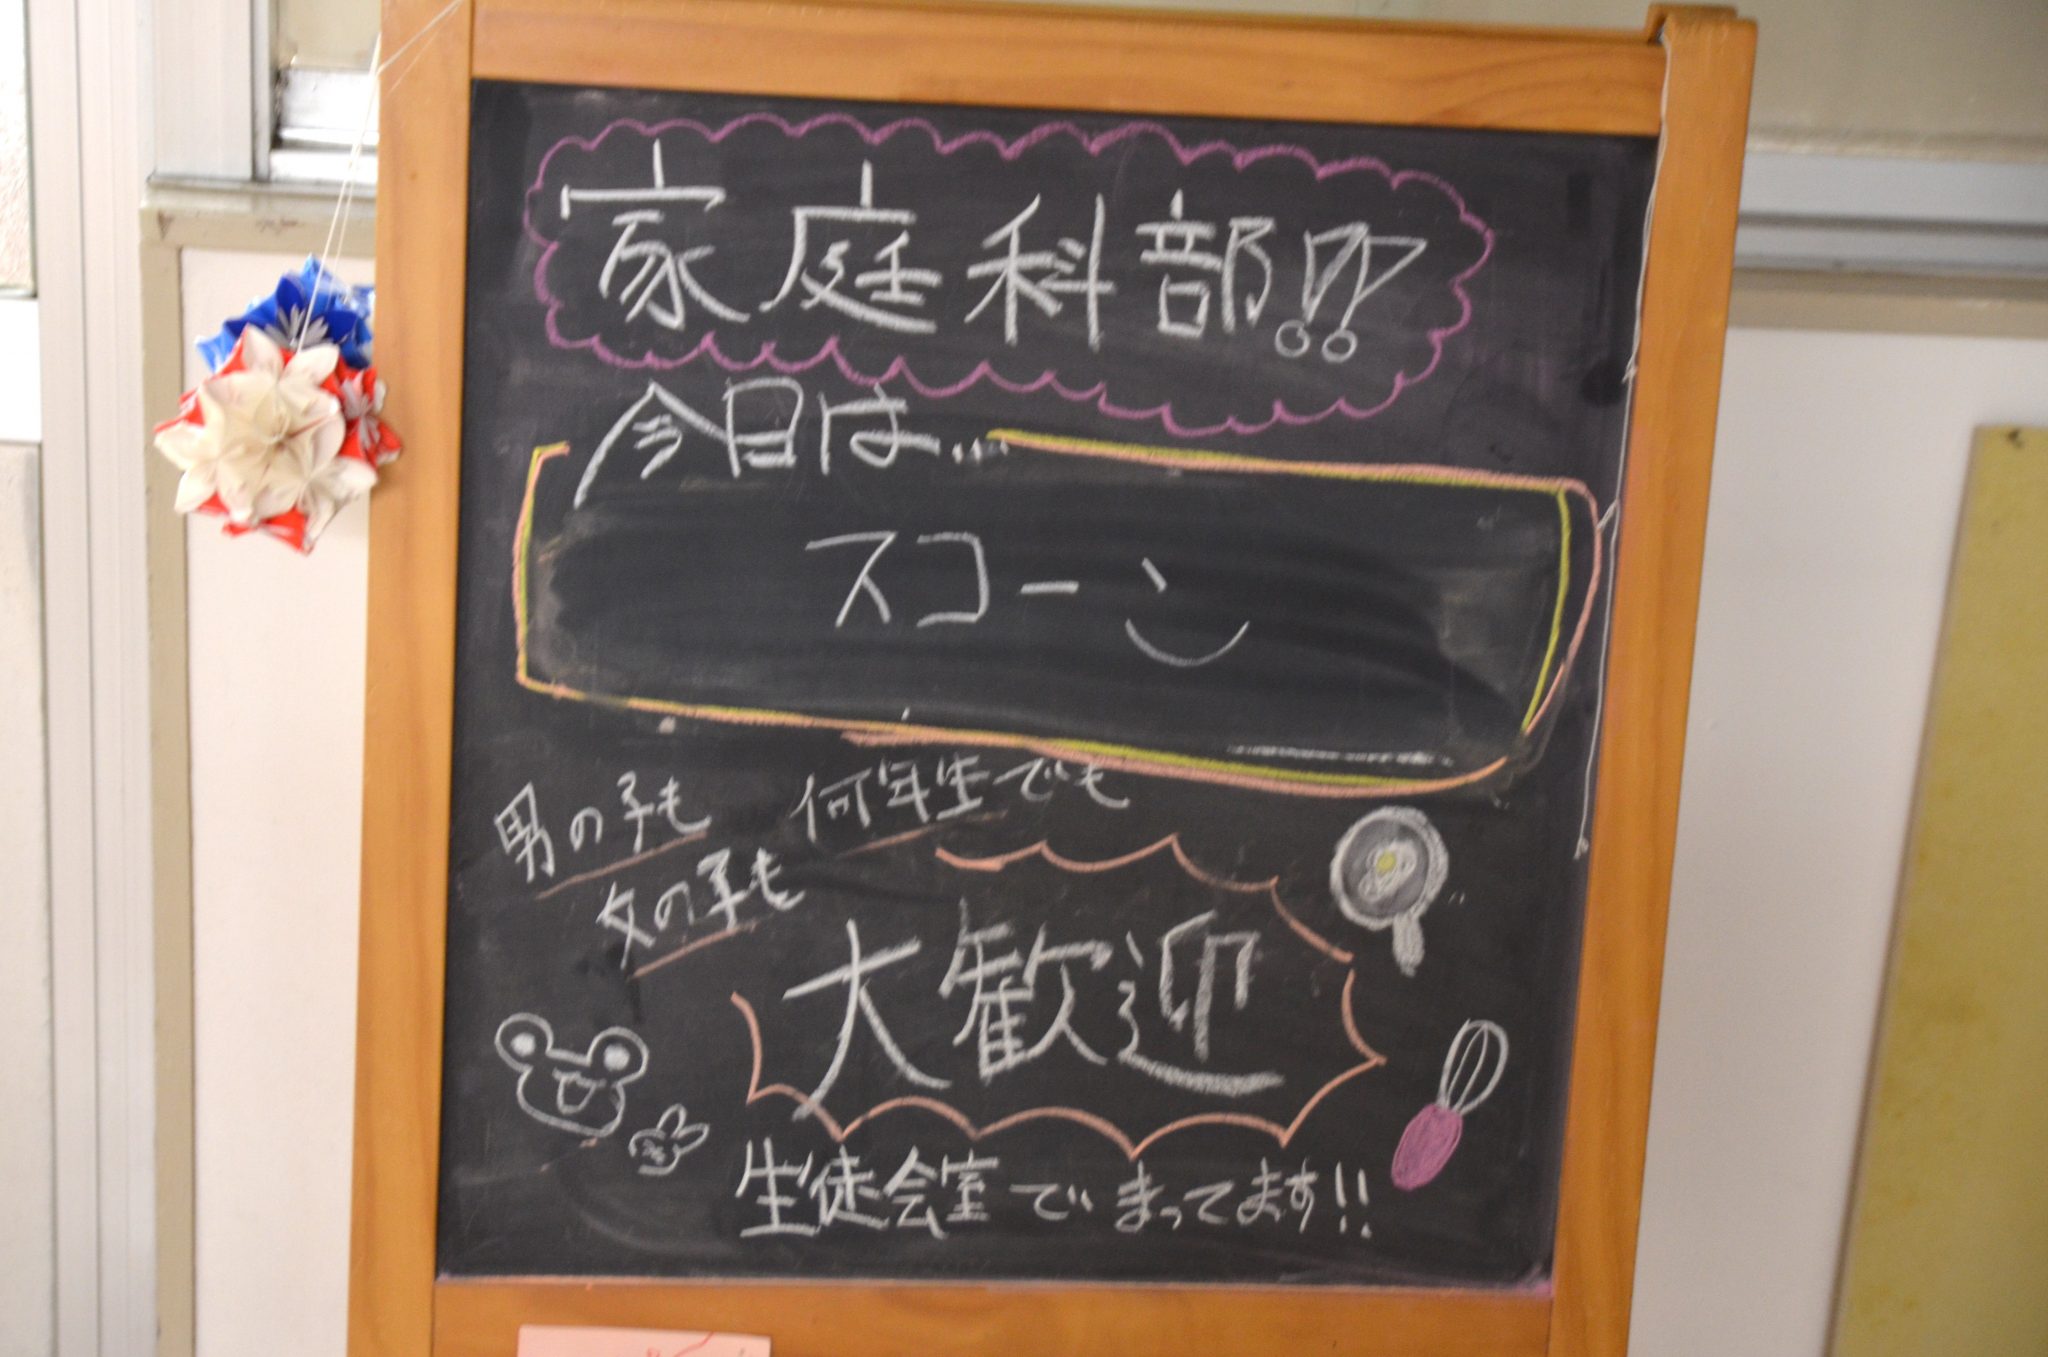 家庭科部!!
今日は...
スコーン
男の子も
女の子も
何年生でも
大歓迎
生徒会室でまってます!!